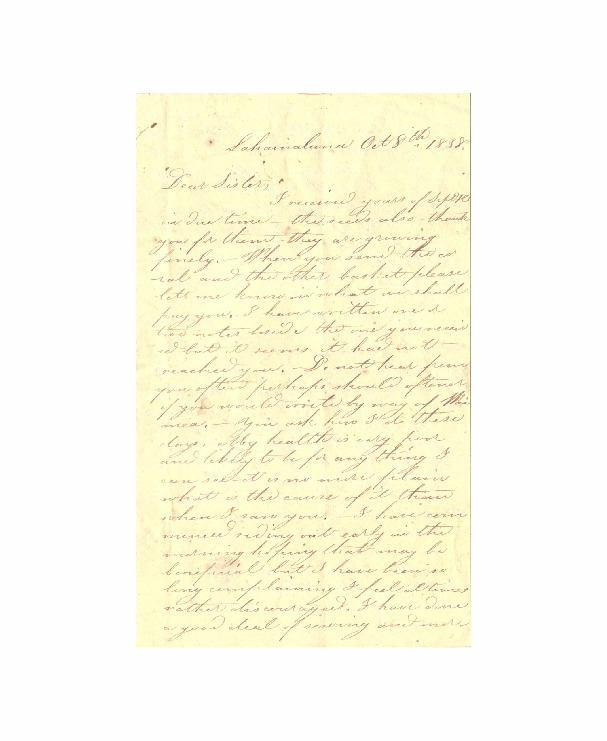 Lahainaluna Oct 8th 1838.
Dear Sister,
I received yours of Sept
in due time – the seeds also – thank
you for them – they are growing
finely. – When you send the co
ral and the other basket please
let me know in what we shall
pay you. I have written one or
two notes beside the one you receiv
ed but it seems it had not
reached you. – Do not hear from
you often perhaps should oftener
if you would write by way of Wai
mea. – You ask how I do these
days. My health is very poor
and likely to be for any thing I
can see it is no more plain
what is the cause of it than
when I saw you. – I have com
menced riding out early in the
morning hoping that may be
beneficial but I have been so
long complaining I feel at times
rather discouraged. I have done
a good deal of sewing and more